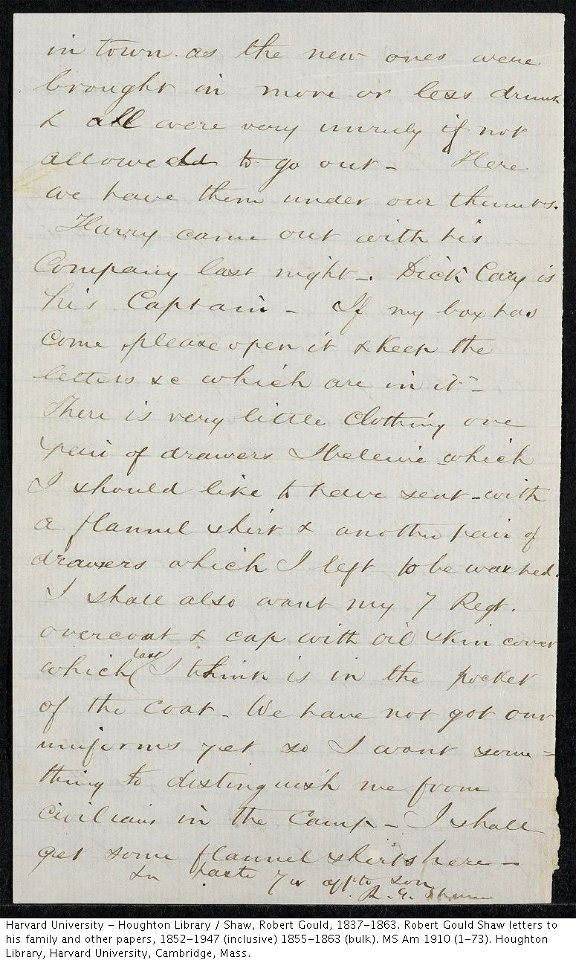 in town. as the new ones were
brought in more or less drunk
& all were very unruly if not
allowedd to go out - Here
we have them under our thumbs.
Harry came out with his
Company last night -. Dick Cary is
his Captain - If my box has
come, please open it & keep the
letters &c which are in it -
There is very little clothing one
pair of drawers I believe - which
I should like to have sent - with
a flannel shirt & another pair of
drawers which I left to be washed.
I shall also want my 7 Regt.
overcoat & cap with oil skin cover
which (last) I think is in the pocket
of the coat - We have not got our
uniforms yet so I want some-
thing to distinguish me from
civilians in the Camp - I shall
get some flannel shirts here -
In haste Yr aff'te son
R. G. Shaw
Harvard University - Houghton Library / Shaw, Robert Gould, 1837-1863. Robert Gould Shaw letters to
his family and other papers, 1852-1947 (inclusive) 1855-1863 (bulk). MS Am 1910 (1-73). Houghton
Library, Harvard University, Cambridge, Mass.